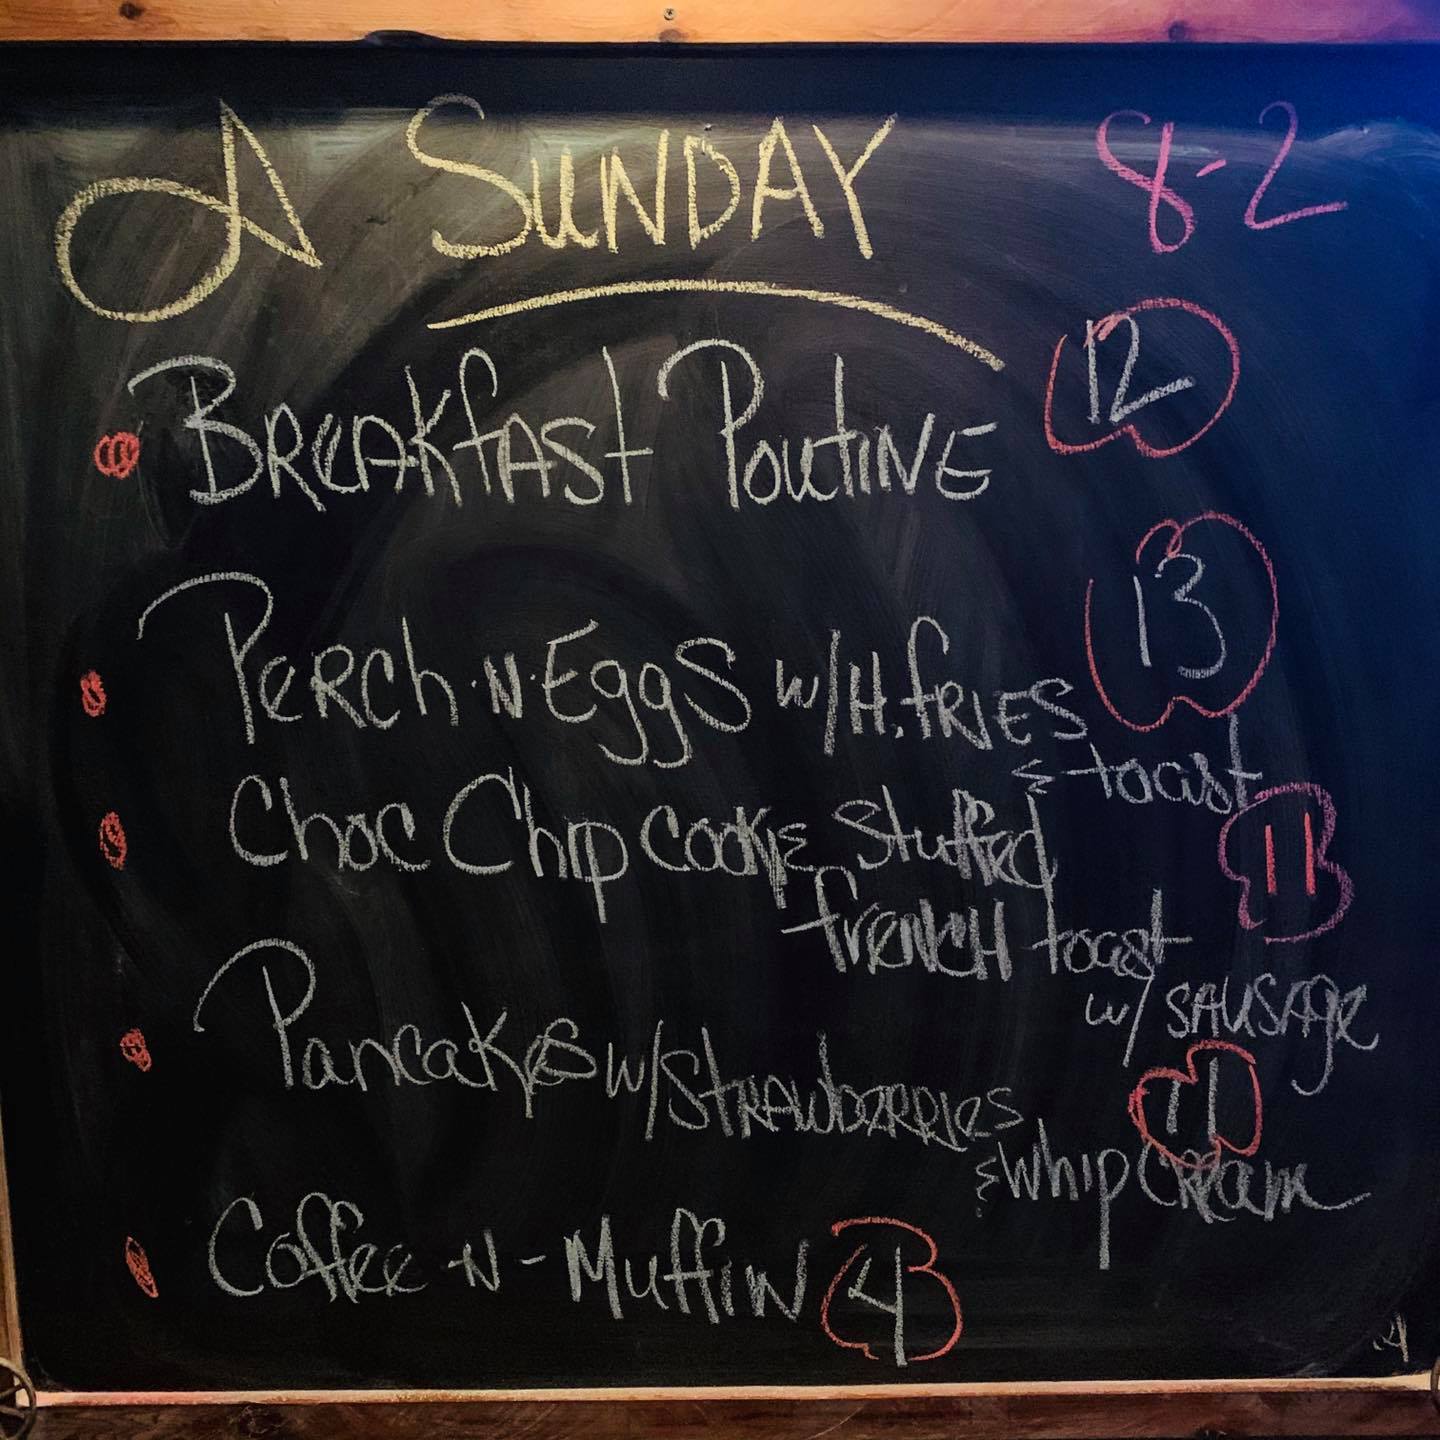 A SUNDAY 8-2
BREAKfAST POUTINE 12
PERCH·N·EggS w/H.fRIES 13
& toast
Choc Chip Cookie Stuffed 11
fRENCH toast
w/ SAUSAgE
PancaKes w/StRAWbERRIES 11
& whip cream
Coffee -N- Muffin 4
.4